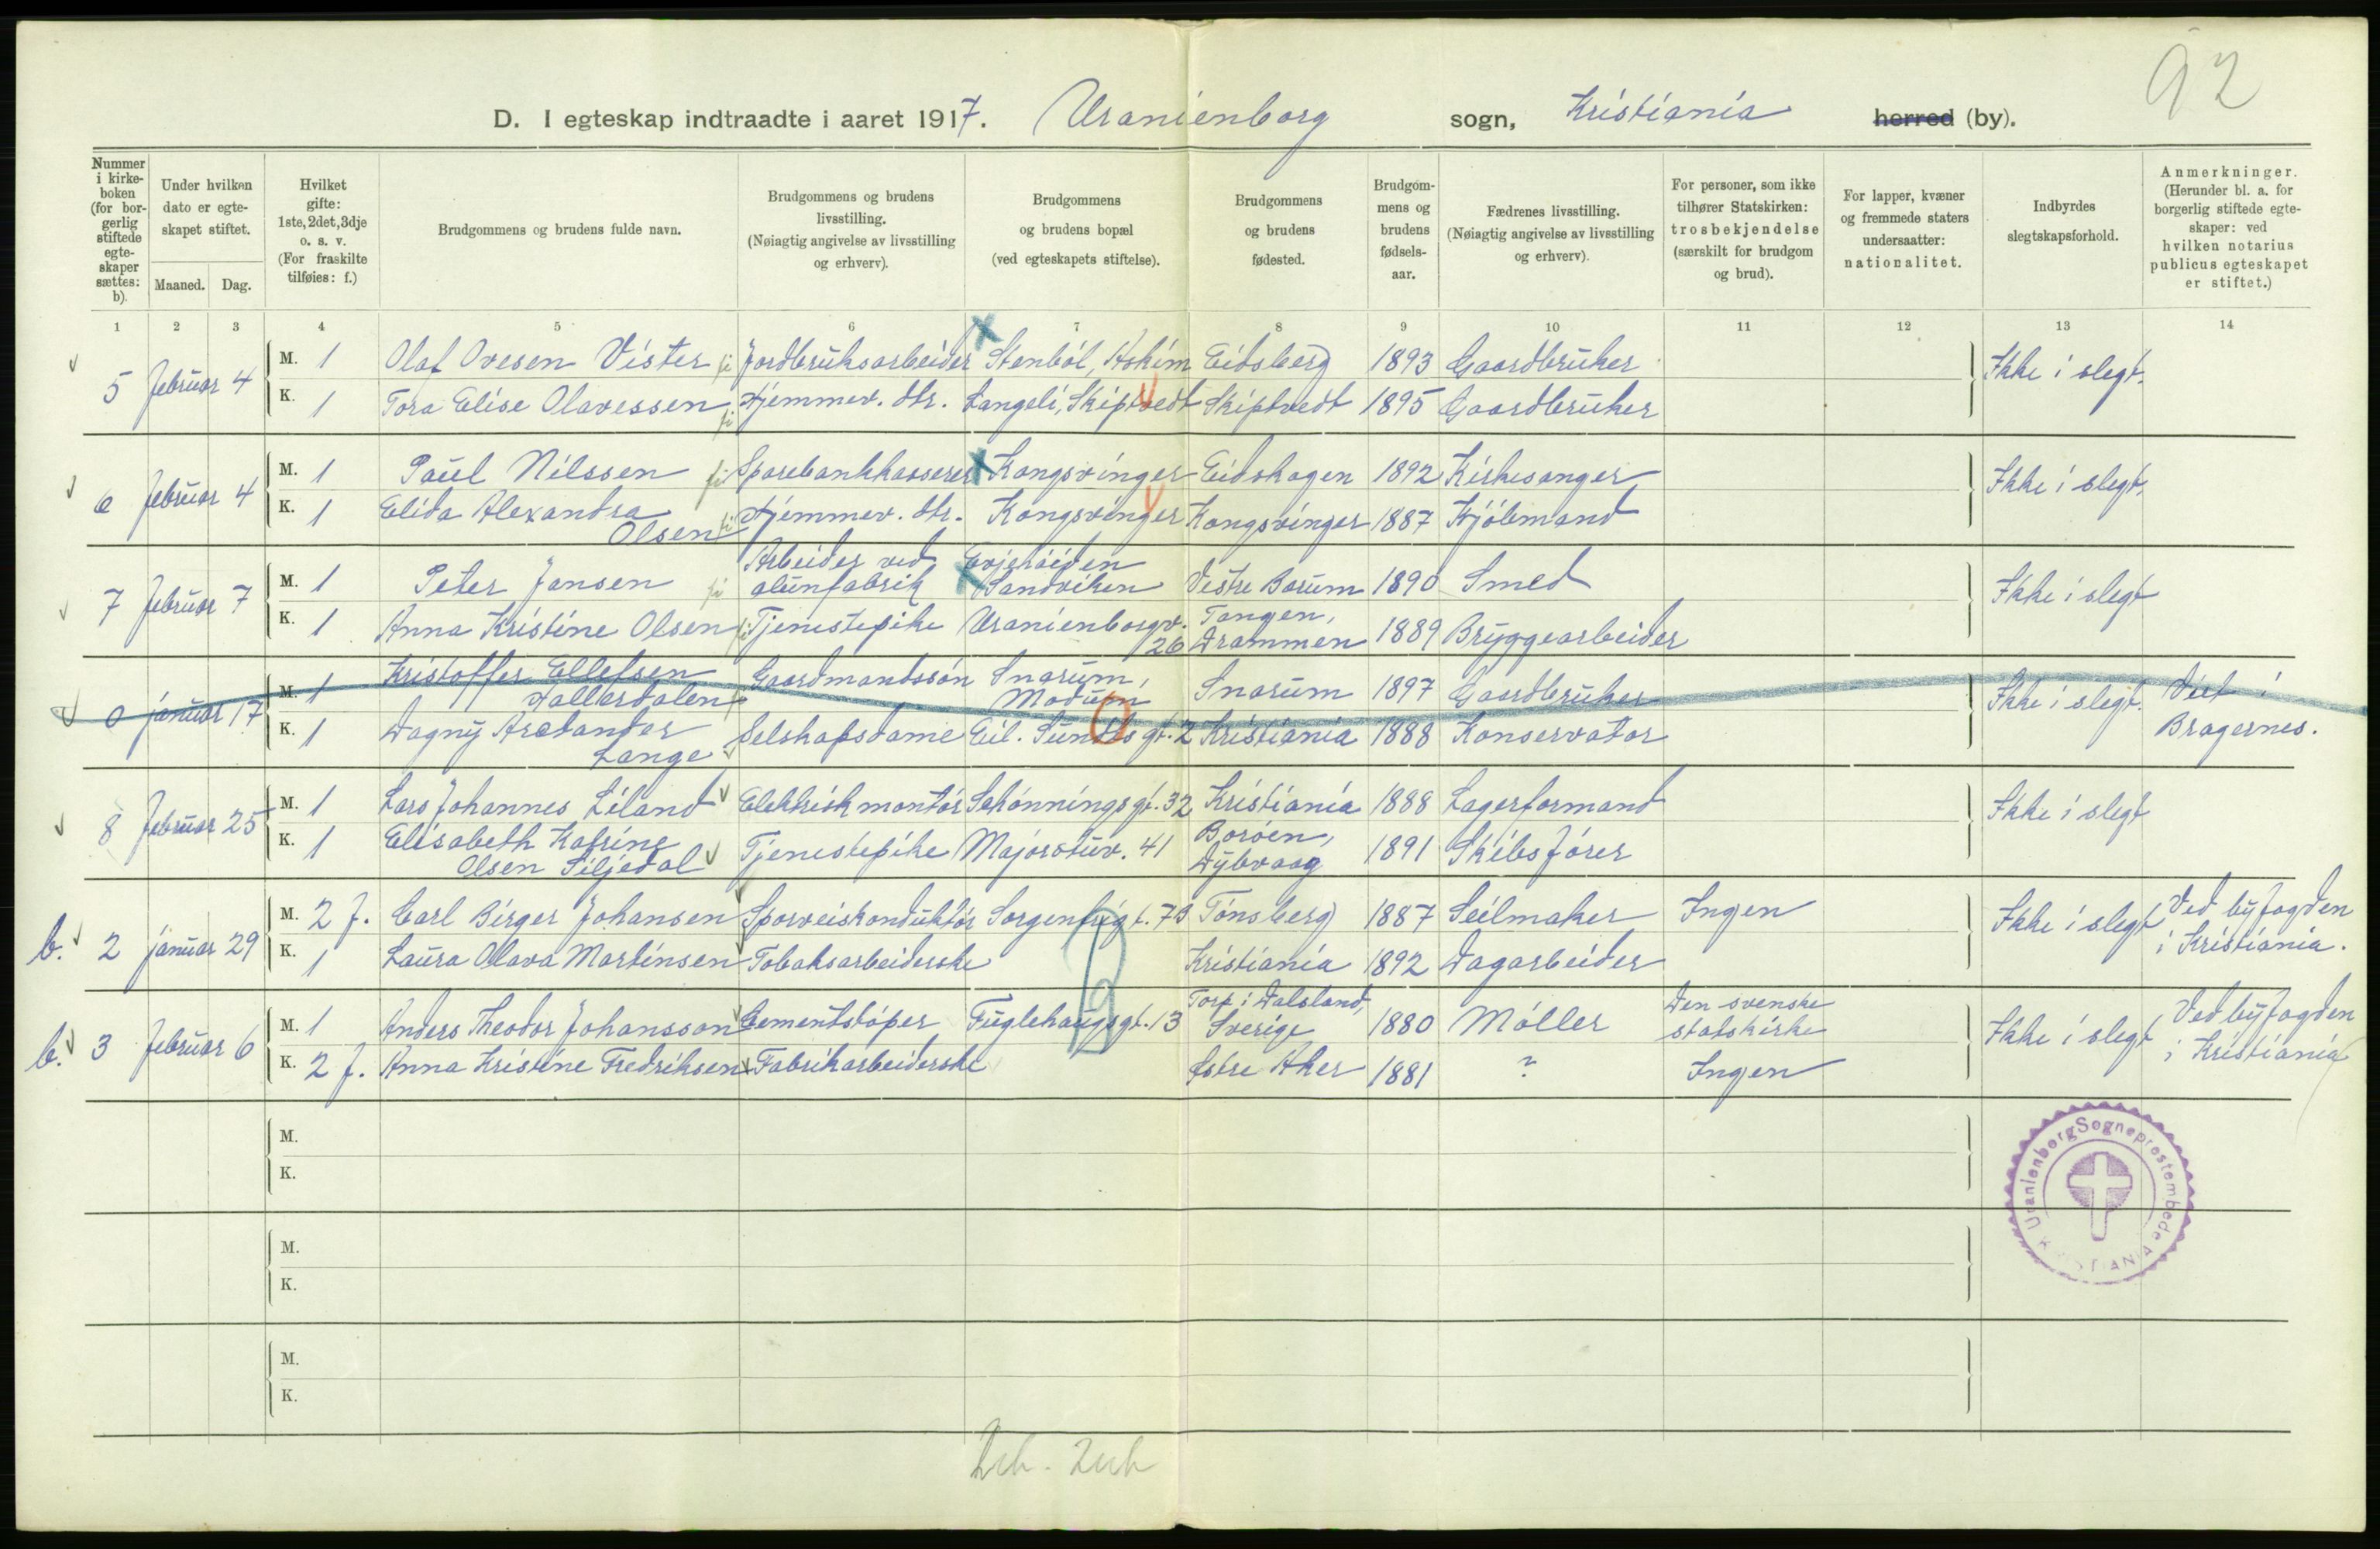 92
D. I egteskap indtraadte i aaret 1917. Uranienborg sogn, Kristiania herred (by).
Nummer i kirkeboken (for borgerlig stiftede egteskaper sættes: b).
Under hvilken dato er egteskapet stiftet.
Maaned. Dag.
Hvilket gifte: 1ste, 2det, 3dje o. s. v. (For fraskilte tilføies: f.)
Brudgommens og brudens fulde navn.
Brudgommens og brudens livsstilling. (Nøiagtig angivelse av livsstilling og erhverv).
Brudgommens og brudens bopæl (ved egteskapets stiftelse).
Brudgommens og brudens fødested.
Brudgommens og brudens fødselsaar.
Fædrenes livsstilling. (Nøiagtig angivelse av livsstilling og erhverv).
For personer, som ikke tilhører Statskirken: trosbekjendelse (særskilt for brudgom og brud).
For lapper, kvæner og fremmede staters undersaatter: nationalitet.
Indbyrdes slegtskapsforhold.
Anmerkninger. (Herunder bl. a. for borgerlig stiftede egteskaper: ved hvilken notarius publicus egteskapet er stiftet.)
1 2 3 4 5 6 7 8 9 10 11 12 13 14
5 februar 4 M. 1 Olaf Ovesen Vister Jordbruksarbeider Stenböl, Askim Eidsberg 1893 Gaardbruker Ikke i slegt.
K. 1 Tora Elise Olavessen Hjemmev. dtr. Langeli, Skiptvedt Skiptvedt 1895 Gaardbruker
6 februar 4 M. 1 Paul Nilssen Sparebankkasserer Kongsvinger Eidskogen 1892 Kirkesanger Ikke i slegt.
K. 1 Elida Alexandra Olsen Hjemmev. dtr. Kongsvinger Kongsvinger 1887 Kjöbmand
7 februar 7 M. 1 Peter Jansen Arbeider ved alunfabrik Evjehöiden Sandviken Vestre Bærum 1890 Smed Ikke i slegt
K. 1 Anna Kristine Olsen Tjenestepike Uranienborgv. 26 Tangen, Drammen 1889 Bryggearbeider
0 januar 17 M. 1 Kristoffer Ellefsen Hallardalen Gaardmandssön Snarum, Modum Snarum 1897 Gaardbruker Ikke i slegt. Viet i Bragernes.
K. 1 Dagny Arctander Lange Selskapsdame Eil. Sundts gt. 2 Kristiania 1888 Konservator
8 februar 25 M. 1 Lars Johannes Liland Elektrisk montör Schönningsgt. 32 Kristiania 1888 Lagerformand Ikke i slegt
K. 1 Elisabeth Katrine Olsen Siljedal Tjenestepike Majorstuv. 41 Boröen, Dybvaag 1891 Skibsförer
b. 2 januar 29 M. 2 f. Carl Birger Johansen Sporveiskonduktör Sorgenfrigt. 7B Tönsberg 1887 Seilmaker Ingen Ikke i slegt Ved byfogden i Kristiania.
K. 1 Laura Olava Martinsen Tobaksarbeiderske Kristiania 1892 Dagarbeider
b. 3 februar 6 M. 1 Anders Theodor Johansson Cementstöper Fuglehaugsgt. 13 Torp i Dalsland, Sverige 1880 Möller Den svenske statskirke Ikke i slegt Ved byfogden i Kristiania
K. 2 f. Anna Kristine Fredriksen Fabrikarbeiderske Östre Aker 1881 ? Ingen
M.
K.
M.
K.
M.
K.
Uranienborg Sogneprestembede
KRISTIANIA